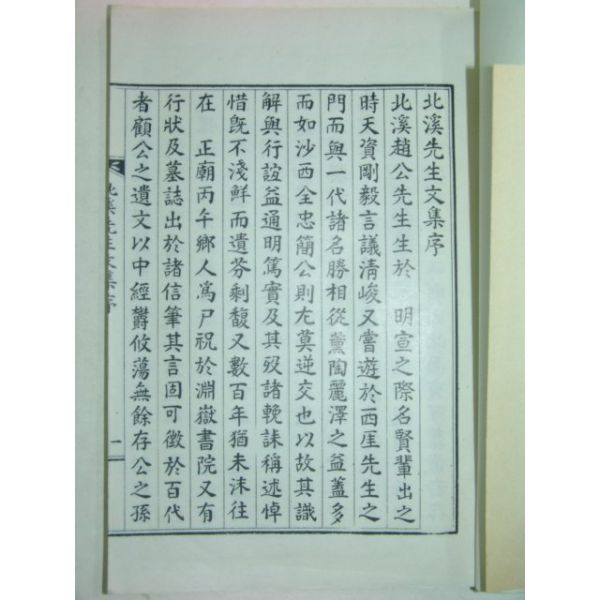 北溪先生文集序
北溪趙公先生生於 明宣之際名賢輩出之
時天資剛毅言議淸峻又嘗遊於西厓先生之
門而與一代諸名勝相從薰陶麗澤之益蓋多
而如沙西全忠簡公則尤莫逆交也以故其識
解與行誼益通明篤實及其歿諸輓誄稱述悼
惜旣不淺鮮而遺芬剩馥又數百年猶未沫往
在 正廟丙午鄕人爲尸祝於淵嶽書院又有
行狀及墓誌出於諸信筆其言固可徵於百代
者顧公之遺文以中經欝攸蕩無餘存公之孫
北溪先生文集序
一